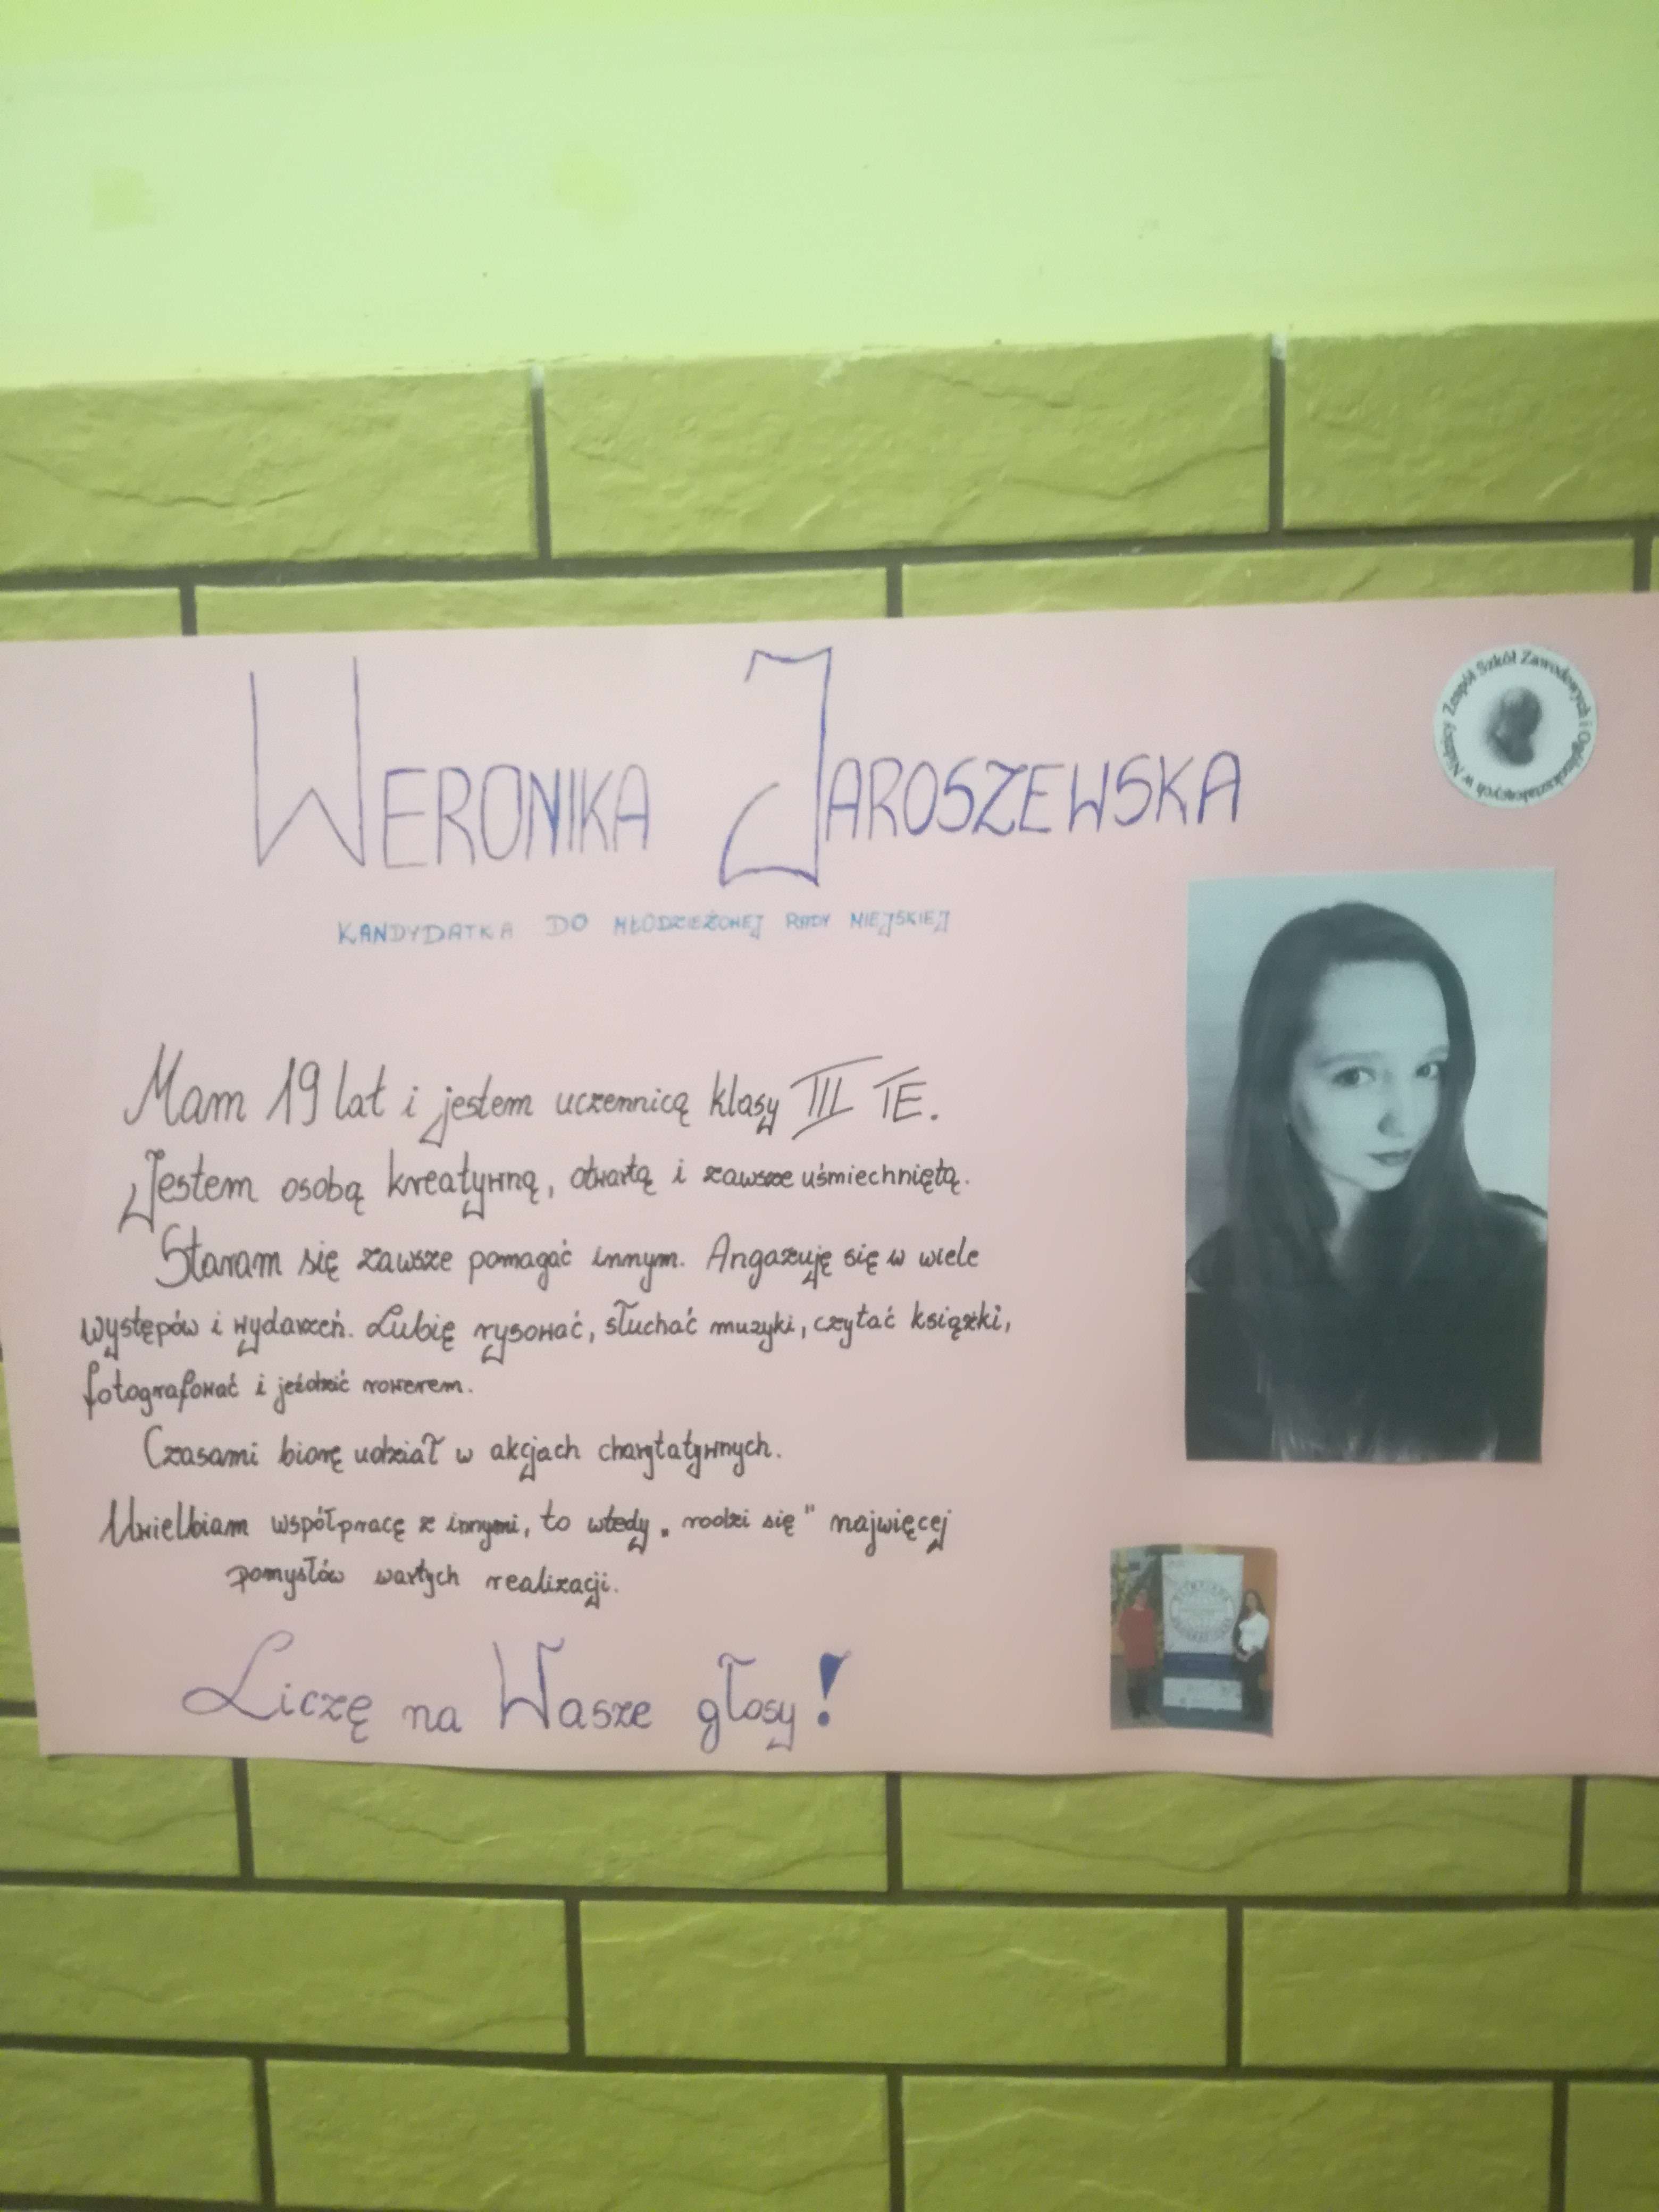 WERONIKA JAROSZEWSKA
Zespół Szkół Zawodowych i Ogólnokształcących w Nidzicy
KANDYDATKA DO MŁODZIEŻOWEJ RADY MIEJSKIEJ
Mam 19 lat i jestem uczennicą klasy III TE.
Jestem osobą kreatywną, otwartą i zawsze uśmiechniętą.
Staram się zawsze pomagać innym. Angażuję się w wiele
występów i wydarzeń. Lubię rysować, słuchać muzyki, czytać książki,
fotografować i jeździć rowerem.
Czasami biorę udział w akcjach charytatywnych.
Uwielbiam współpracę z innymi, to wtedy „rodzi się" najwięcej
pomysłów wartych realizacji.
Liczę na Wasze głosy!